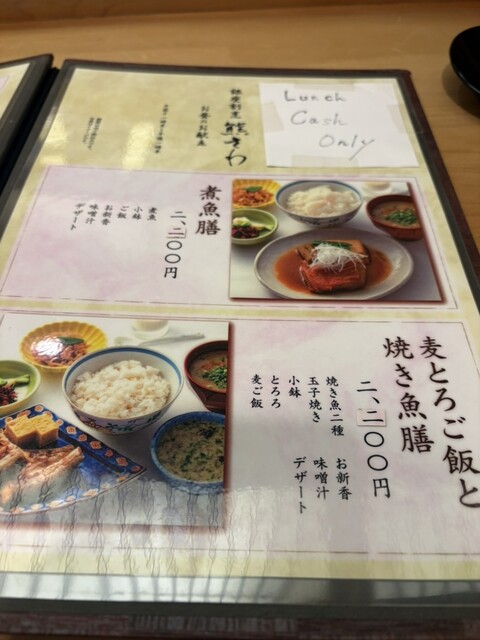 Lunch
Cash
Only
銀座割烹 熊さわ
お昼のお献立
煮魚膳
二、二〇〇円
煮魚
小鉢
ご飯
お新香
味噌汁
デザート
麦とろご飯と
焼き魚膳
二、二〇〇円
焼き魚二種
玉子焼き
小鉢
とろろ
麦ご飯
お新香
味噌汁
デザート